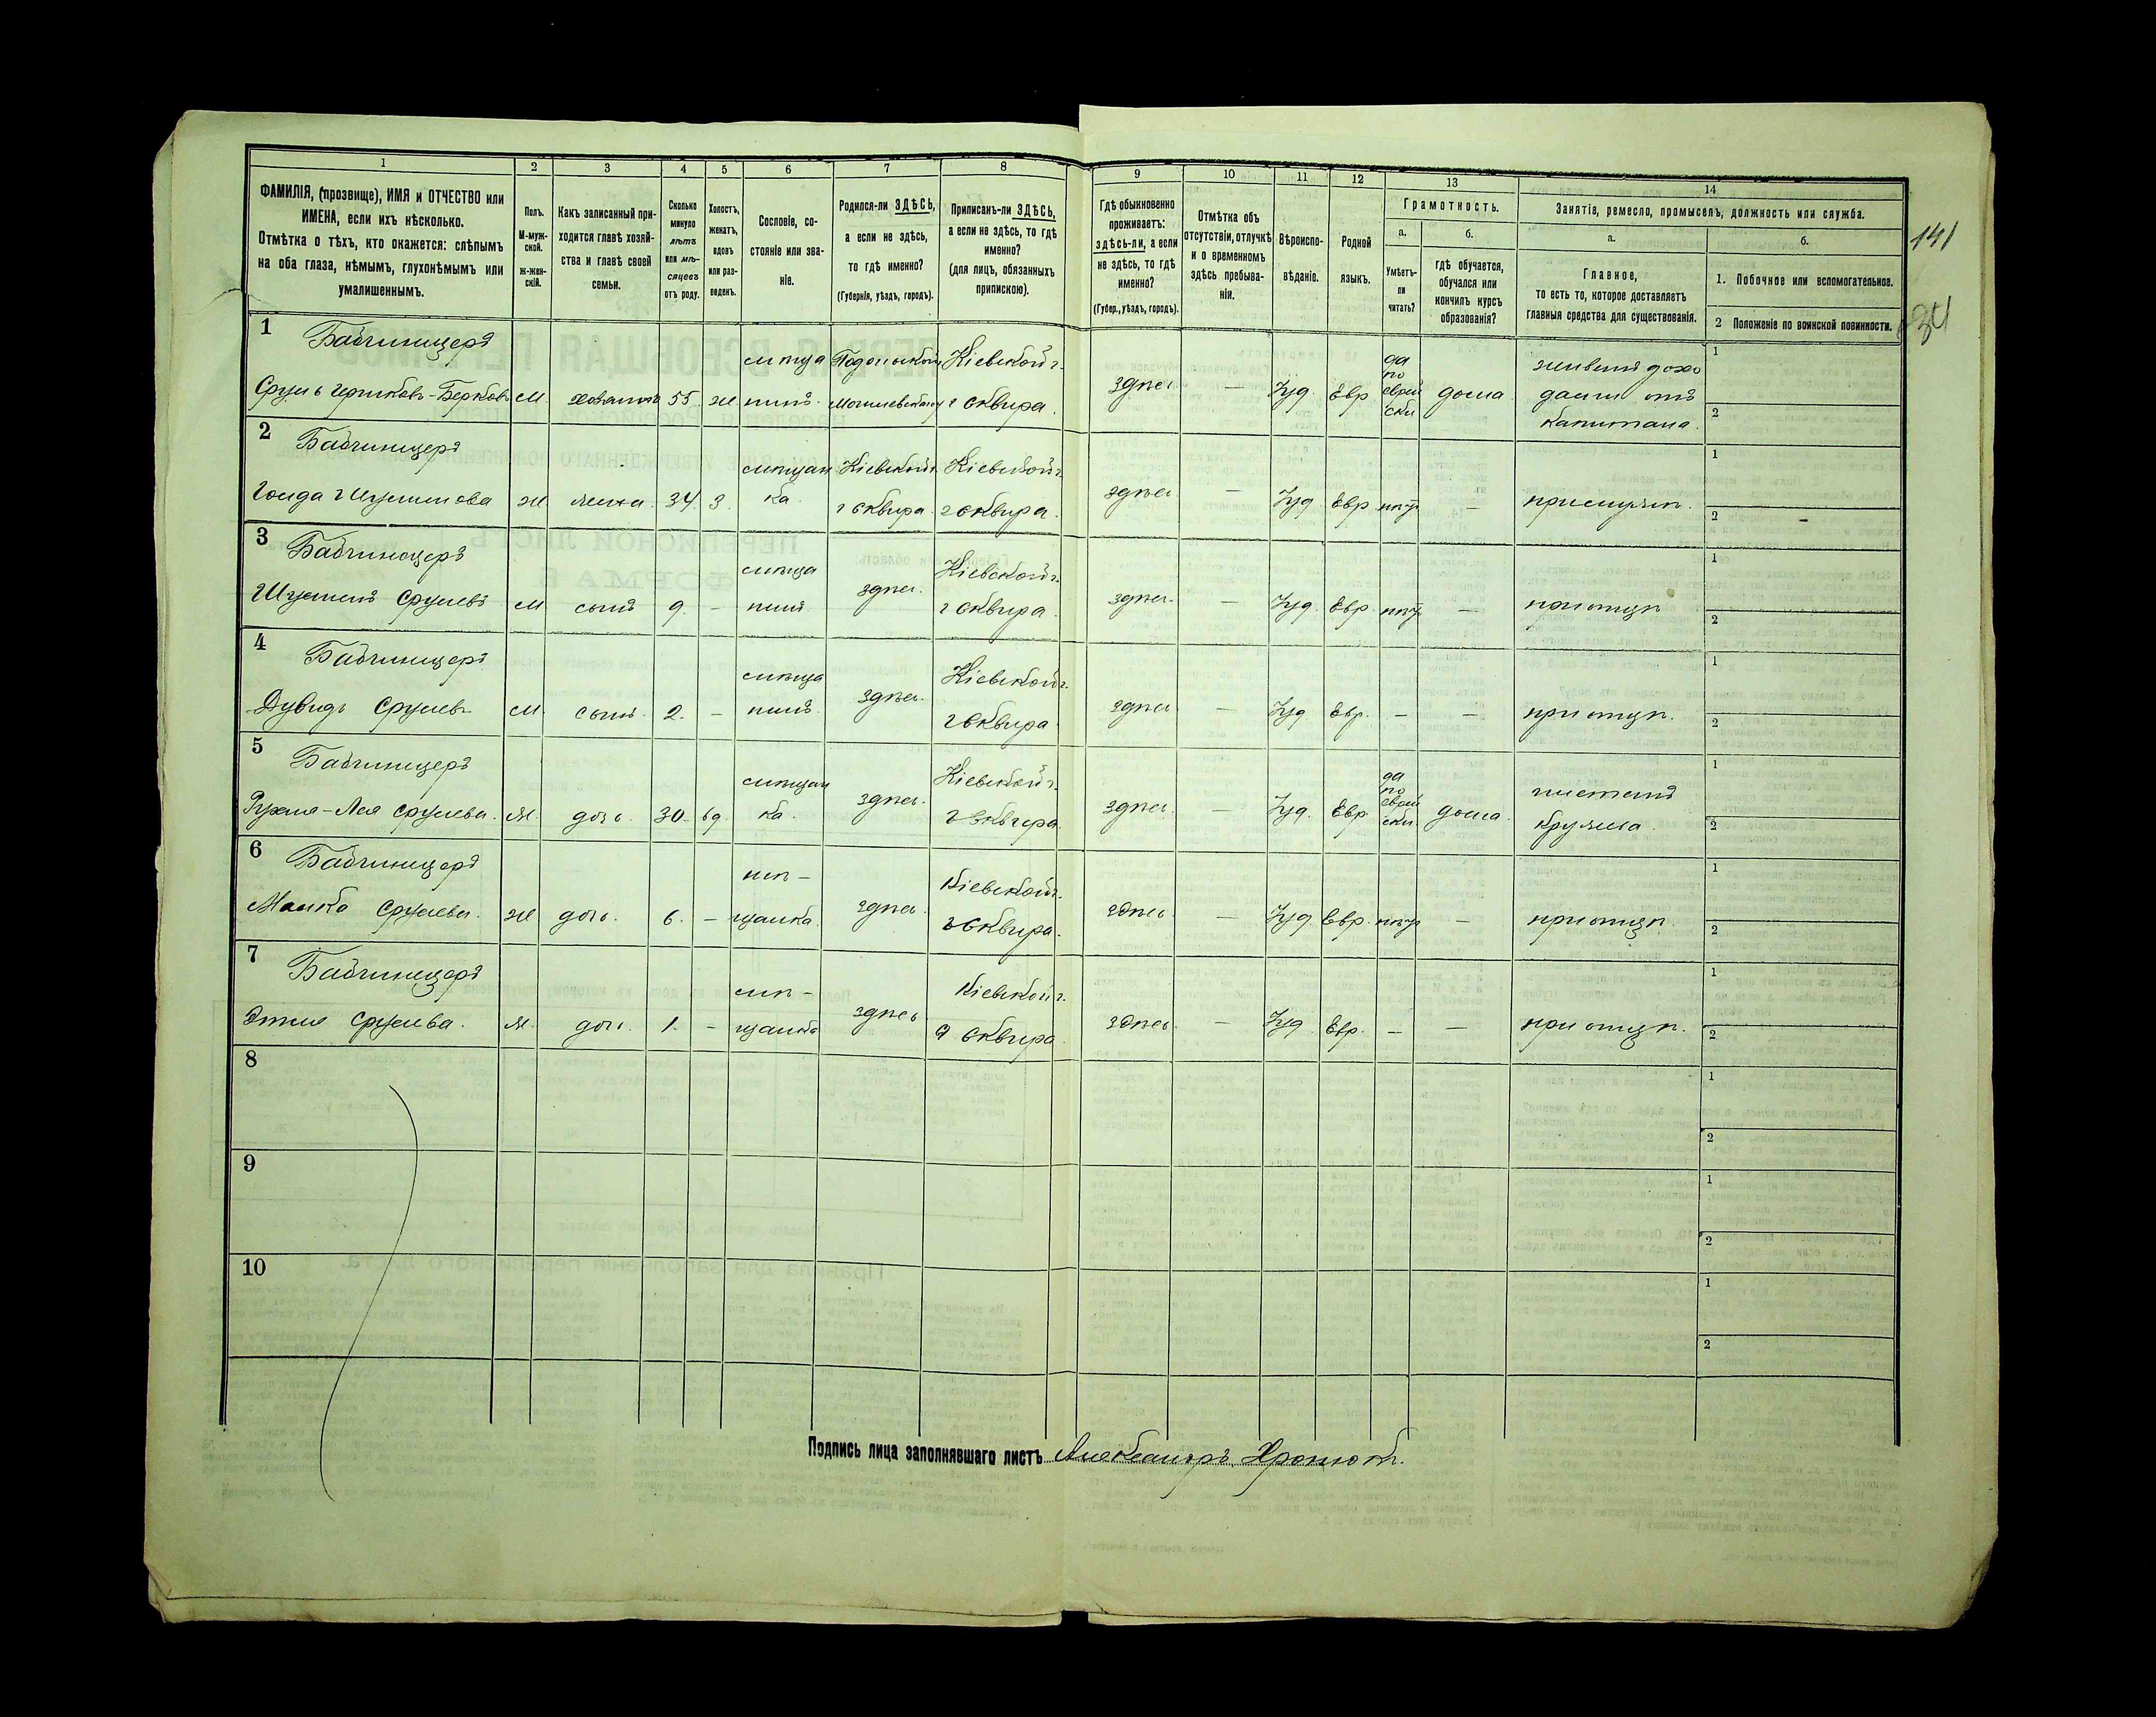 1 2 3 4 5 6 7 8 9 10 11 12 13 14
ФАМИЛІЯ, (прозвище), ИМЯ и ОТЧЕСТВО или
ИМЕНА, если ихъ нѣсколько.
Отмѣтка о тѣхъ, кто окажется: слѣпымъ
на оба глаза, нѣмымъ, глухонѣмымъ или
умалишеннымъ.
Полъ.
М-муж-
ской.
ж-жен-
скій.
Какъ записанный при-
ходится главѣ хозяй-
ства и главѣ своей
семьи.
Сколько
минуло
лѣтъ
или мѣ-
сяцевъ
отъ роду.
Холостъ,
женатъ,
вдовъ
или раз-
веденъ.
Сословіе, со-
стояніе или зва-
ніе.
Родился-ли ЗДѢСЬ,
а если не здѣсь,
то гдѣ именно?
(Губернія, уѣздъ, городъ).
Приписанъ-ли ЗДѢСЬ,
а если не здѣсь, то гдѣ
именно?
(для лицъ, обязанныхъ
припискою).
Гдѣ обыкновенно
проживаетъ:
здѣсь-ли, а если
не здѣсь, то гдѣ
именно?
(Губер., уѣздъ, городъ).
Отмѣтка объ
отсутствіи, отлучкѣ
и о временномъ
здѣсь пребыва-
ніи.
Вѣроиспо-
вѣданіе.
Родной
языкъ.
Грамотность.
а.
Умѣетъ-
ли
читать?
б.
гдѣ обучается,
обучался или
кончилъ курсъ
образованія?
Занятіе, ремесло, промыселъ, должность или служба.
а.
Главное,
то есть то, которое доставляетъ
главныя средства для существованія.
б.
1. Побочное или вспомогательное.
2 Положеніе по воинской повинности.
141
34
1 Бабчиницеръ
Сруль -Берковъ М. 55 ж
мѣща
нинъ
Подольской
Кіевской г.
г Сквира.
здѣсь — Іуд Евр
да
по
еврей
ски
дома
живетъ дохо
дами отъ
капитала.
1
2
2 Бабчиницеръ
ж. жена. 34 з.
мѣщан
ка
Кіевской г.
г Сквира.
Кіевской г.
г Сквира.
здѣсь — Іуд. Евр. нѣт — при мужѣ.
1
2
3 Бабчиницеръ
Шулимъ Срулевъ М сынъ 9. —
мѣща
нинъ
здѣсь.
Кіевской г.
г Сквира.
здѣсь. — Іуд. Евр. нѣт — при отцѣ
1
2
4 Бабчиницеръ
Дувидъ Срулевъ М. сынъ. 2. —
мѣща
нинъ.
здѣсь.
Кіевской г.
г Сквира.
здѣсь — Іуд Евр. — — при отцѣ.
1
2
5 Бабчиницеръ
Рухля-Лея Срулева. ж. дочь. 30.
мѣщан
ка.
здѣсь.
Кіевской г.
г Сквира.
здѣсь. — Іуд. Евр.
да
по
еврей
ски
дома.
1
2
6 Бабчиницеръ
Малка Срулева. ж дочь. 6. —
мѣ-
щанка.
здѣсь.
Кіевской г.
г Сквира.
здѣсь. — Іуд. Евр. нѣт — при отцѣ.
1
2
7 Бабчиницеръ
Этля Срулева. ж. дочь. 1. —
мѣ-
щанка
здѣсь
Кіевской г.
г Сквира.
здѣсь. — Іуд Евр. — — при отцѣ.
1
2
8
1
2
9
1
2
10
1
2
Подпись лица заполнявшаго листъ Александръ